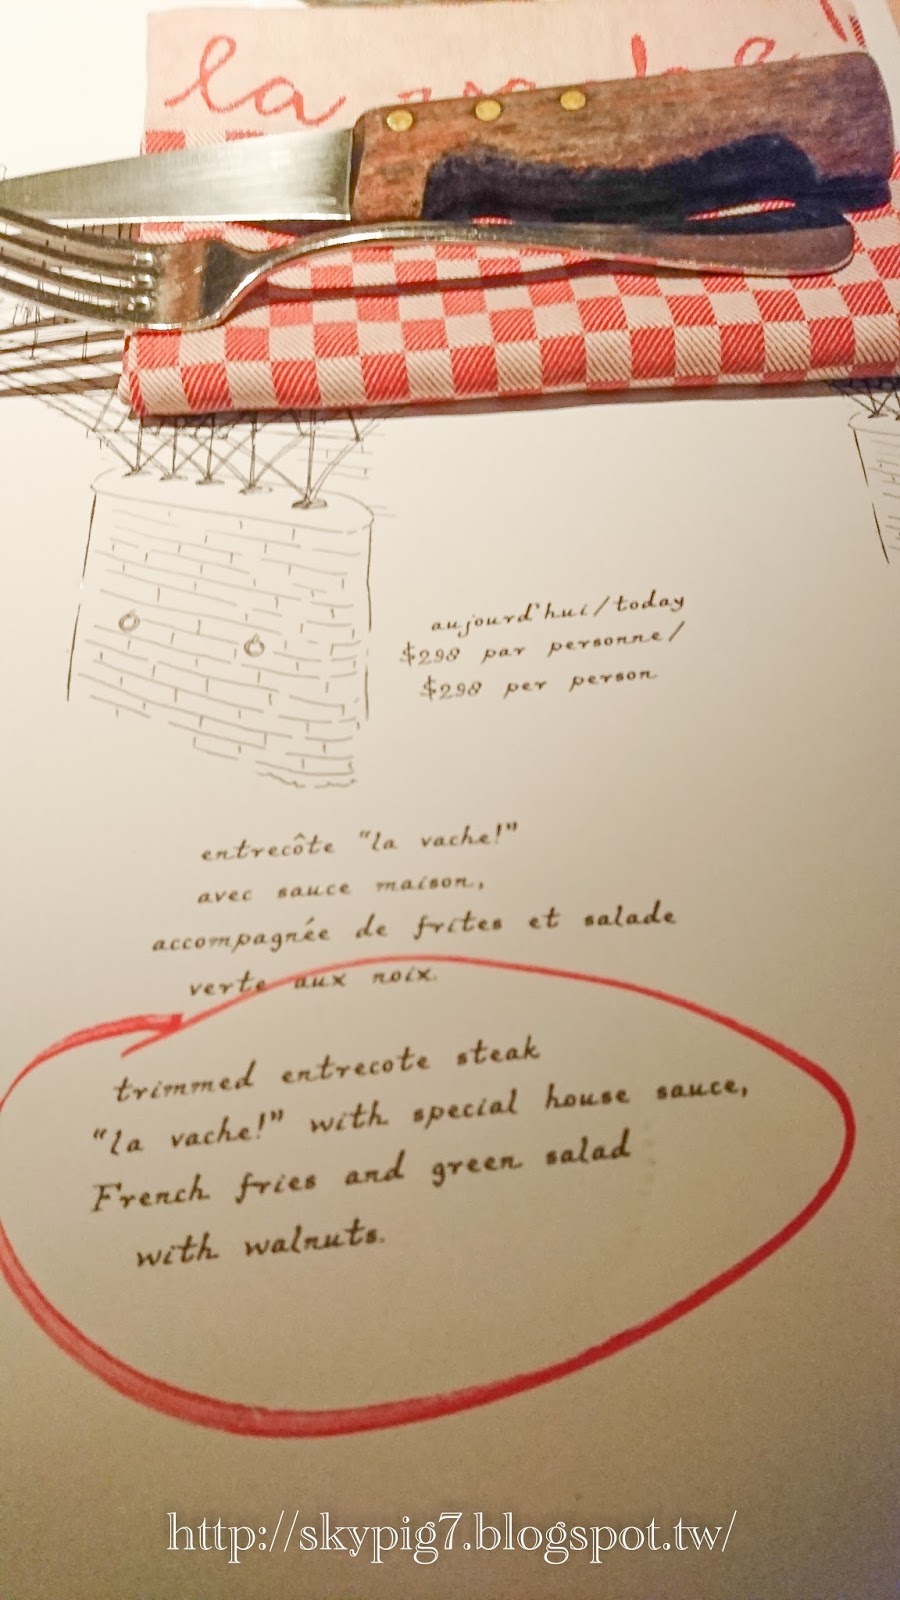 la
aujourd'hui/today
$298 par personne/
$298 per person
entrecôte "la vache!"
avec sauce maison,
accompagnée de frites et salade
verte aux noix.
trimmed entrecote steak
"la vache!" with special house sauce,
French fries and green salad
with walnuts.
http://skypig7.blogspot.tw/